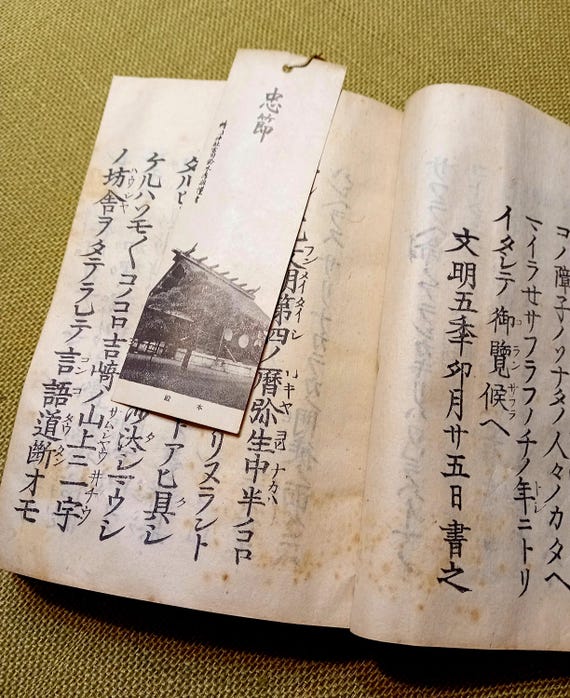 コノ障子ノソナタノ人々ノカタヘ
マイラセサフラフノチノ年ニトリ
イタシテ御覧候ヘ
文明五年卯月廿五日書之
明第四ノ暦弥生中半ノコロ
リヌラント
トアヒ具シ
沙汰シマウシ
ケルハソモ〱コノコロ吉崎ノ山上ニ一宇
ノ坊舎ヲタテラレテ言語道断オモ
忠節
殿本